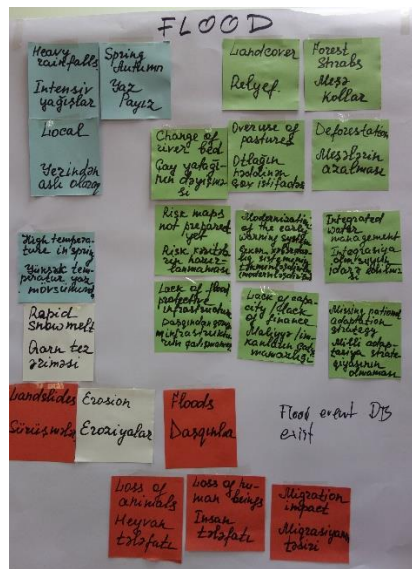 FLOOD
Heavy
rainfalls
Intensiv
yağışlar
Spring
Autumn
Yaz
Payız
Landcover
Relyef.
Forest
Shrabs
Meşə
Kollar
Local
Yerindən
asılı olaraq
Change of
river bed
Çay yatağı-
nın dəyişmə-
si
Overuse of
pastures
Otlağın
həddindən
çox istifadəsi
Deforestation
Meşələrin
azalması
High tempera-
ture in spring
Yüksək tem-
peratur yaz
mövsümündə
Risk maps
not prepared
yet
Modernisation
of the early
warning system
Integrated
water
management
Rapid
snowmelt
Qarın tez
əriməsi
Lack of flood
protective
infrastructure
Lack of capa-
city/lack
of finance
Missing national
adaptation
strategy
Milli adap-
tasiya strate-
giyasının
olmaması
Landslides
Sürüşmələr
Erosion
Eroziyalar
Floods
Daşqınlar
Flood event DB
exist
Loss of
animals
Heyvan
tələfatı
Loss of hu-
man beings
İnsan
tələfatı
Migration
impact
Migrasiyanın
təsiri